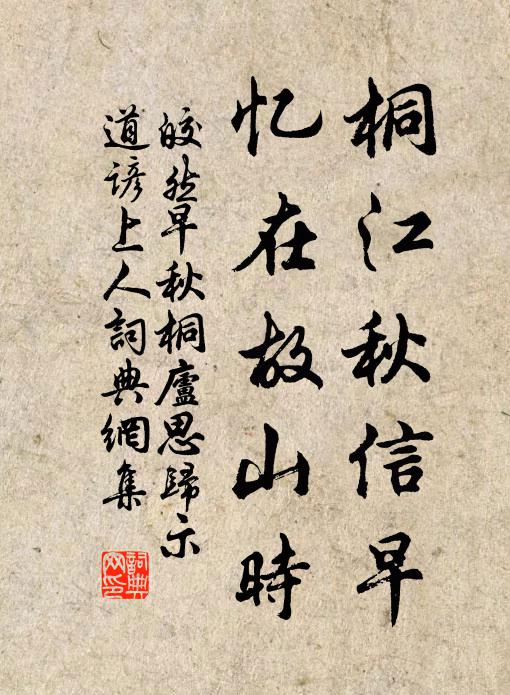 桐江秋信早
忆在故山時
皎然早秋桐廬思歸示
道諺上人詞典網集
詞典
网印